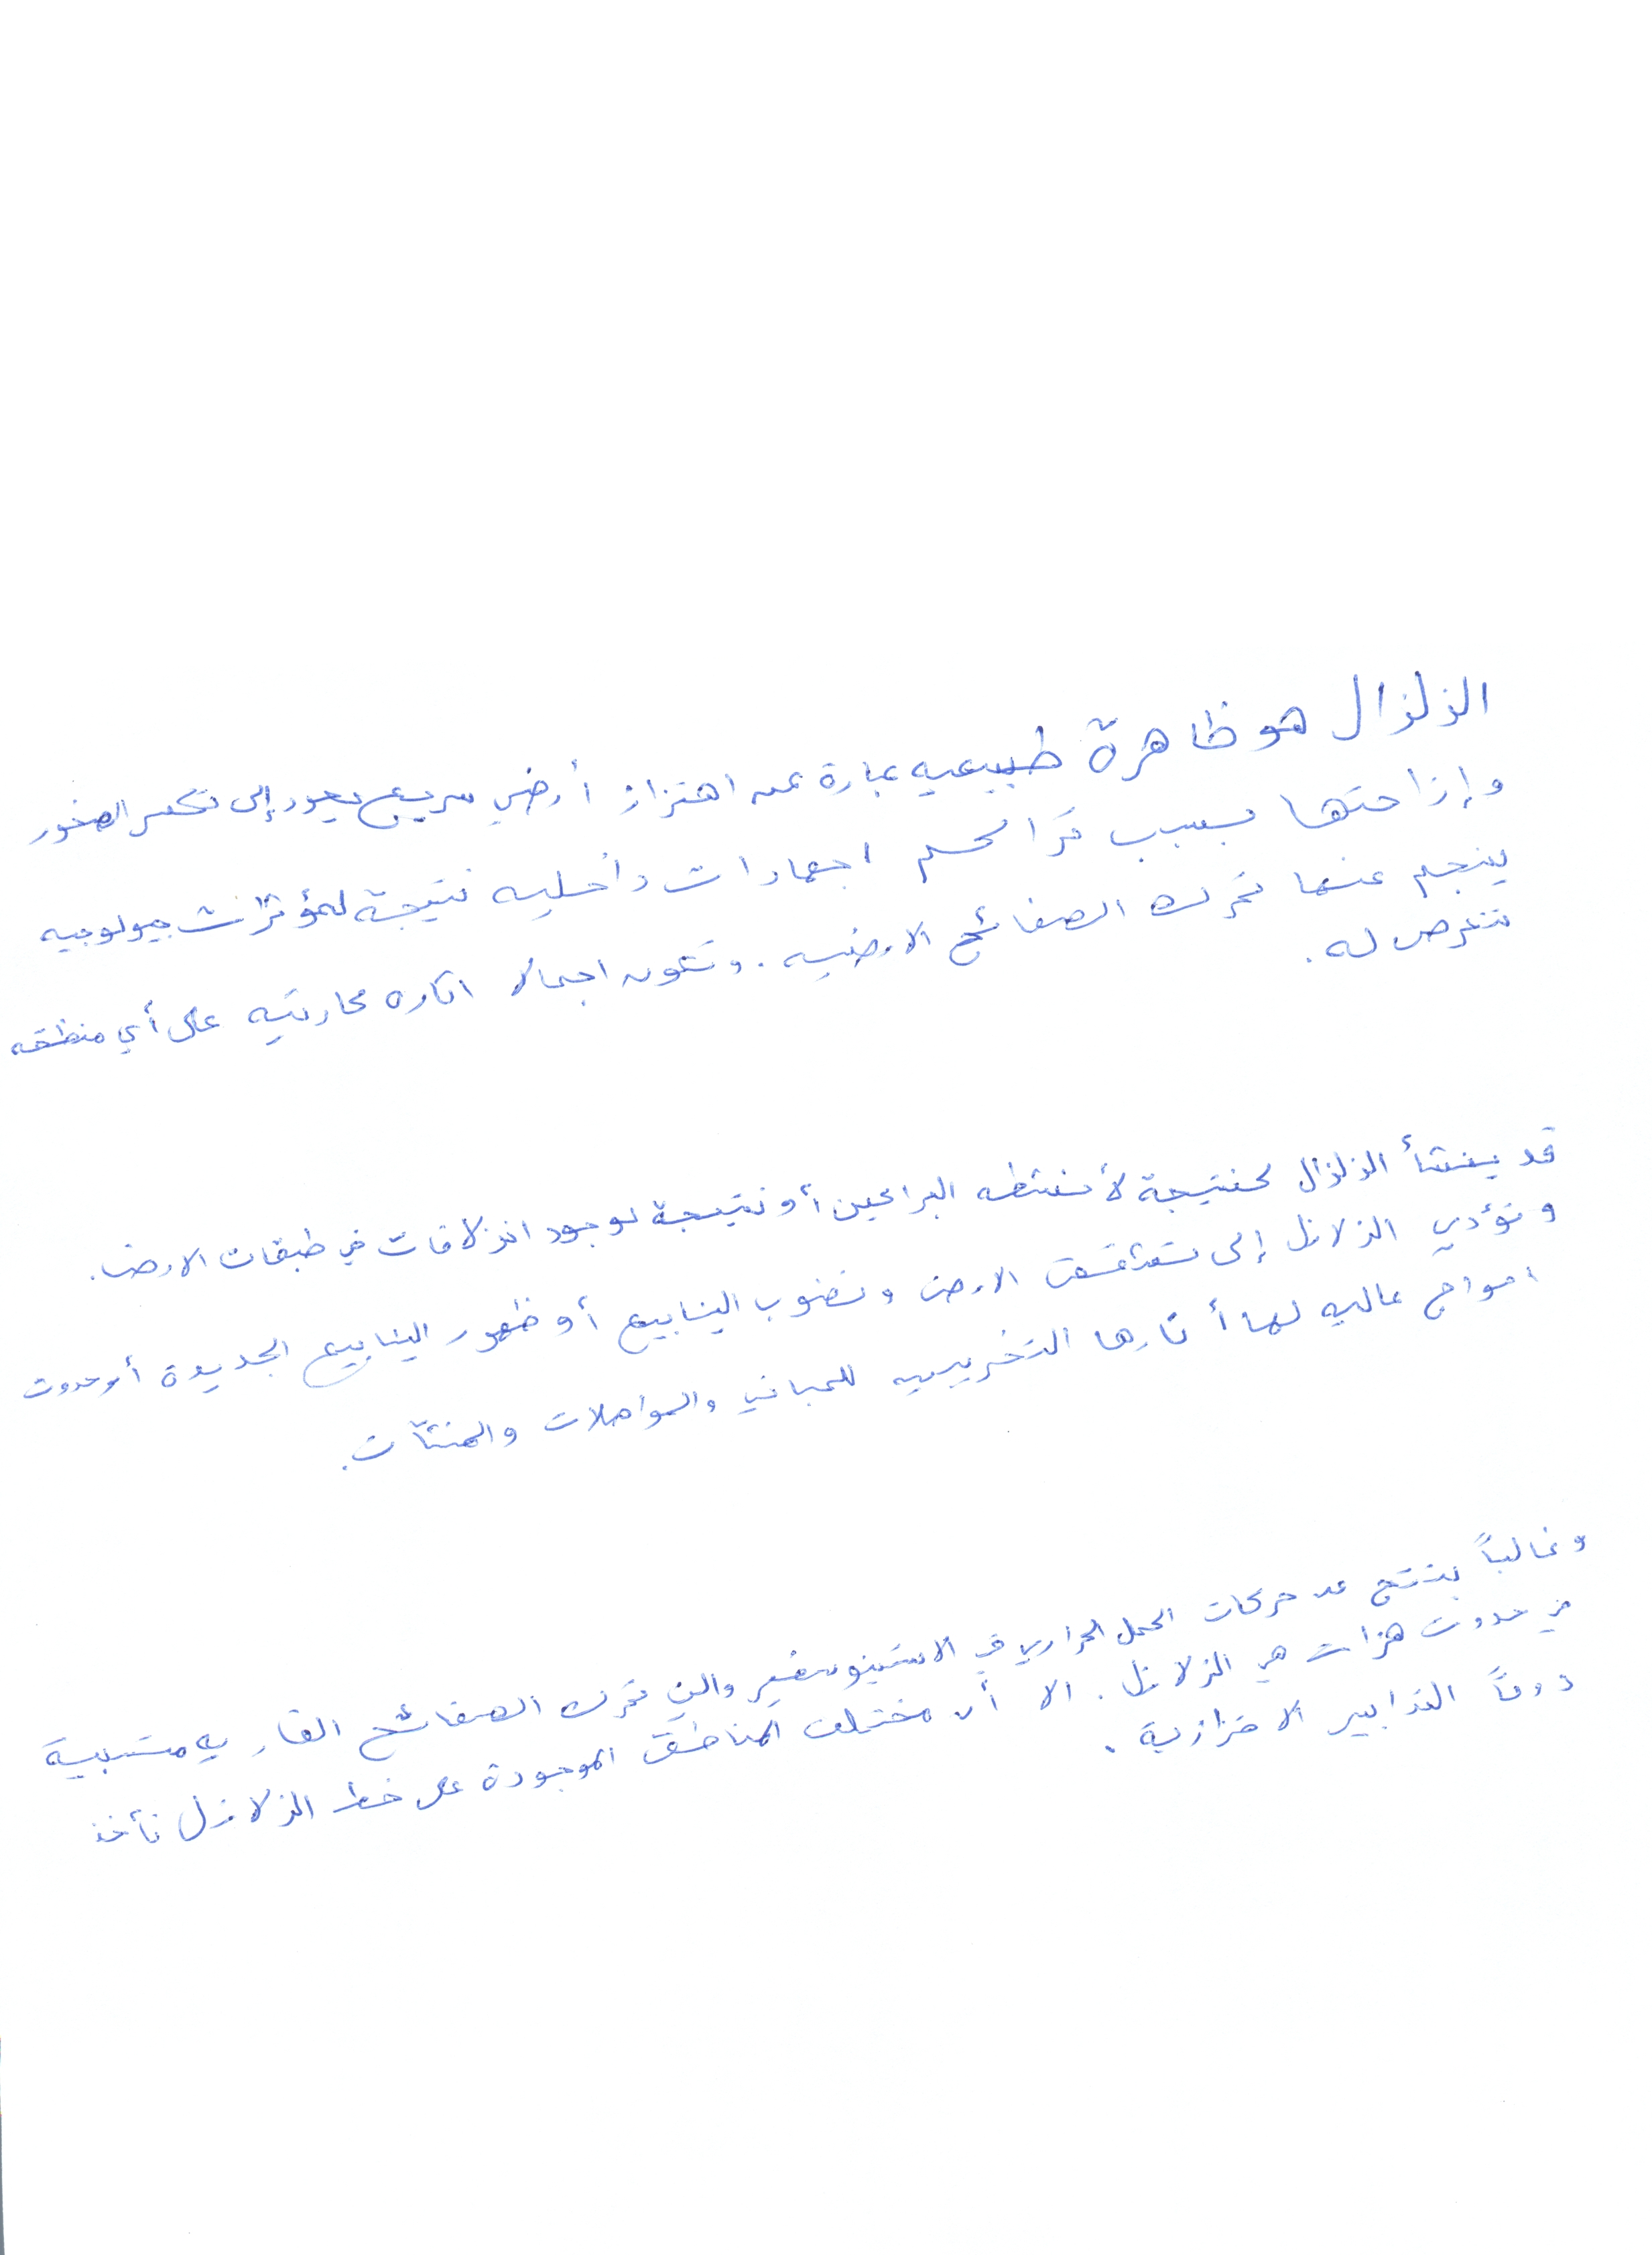 الزلزال هو ظاهرة طبيعيه عبارة عن اهتزاز أرضي سريع يعود إلى تكسر الصخور
وإزاحتها بسبب تراكم اجهادات داخليه نتيجة لمؤثرات جيولوجيه
ينجم عنها تحرك الصفائح الارضيه. وتكون اجمالا اثاره كارثيه على أي منطقه
تتعرض له.
قد ينشأ الزلزال كنتيجة لأنشطه البراكين أو نتيجة لوجود انزلاقات في طبقات الارض.
وتؤدي الزلازل إلى تشقق الارض ونضوب الينابيع أو ظهور الينابيع الجديدة أو حدوث
امواج عاليه لها أثارها التخريبيه للمباني والمواصلات والمنشآت.
وغالباً ينتج عن حركات الحمل الحراري في الاستينوسفير والتي تحرك الصفائح القاريه مسببة
في حدوث هزات هي الزلازل. الا أن مختلف المناطق الموجودة على خط الزلازل تأخذ
دوماً التدابير الاحترازية.